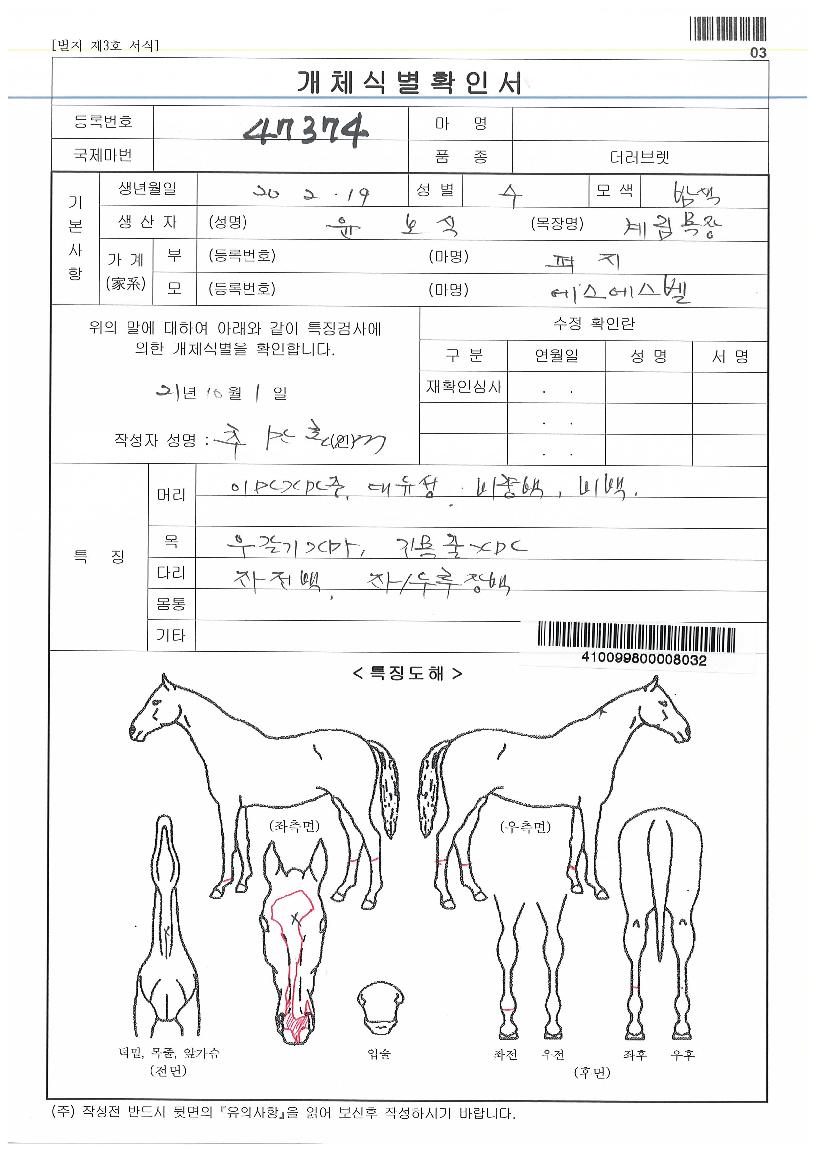 [별지 제3호 서식]
03
개체식별확인서
등록번호 47374 마 명
국제마번 품 종 더러브렛
기본사항
생년월일 20 2 . 19 성 별 수 모 색 밤색
생 산 자 (성명) 윤 보 식 (목장명) 체림목장
가 계 (家系) 부 (등록번호) (마명) 퍼 지
모 (등록번호) (마명) 에스에스벨
위의 말에 대하여 아래와 같이 특징검사에
의한 개체식별을 확인합니다.
21년 10월 1일
작성자 성명 : (인)
수정 확인란
구 분 연월일 성 명 서 명
재확인심사 . .
. .
. .
특 징
머리 대유성 . 비종백, 비백.
목
다리 좌전백,
몸통
기타
410099800008032
< 특징도해 >
(좌측면) (우측면)
턱밑, 목줄, 앞가슴
(전면)
입술
좌전 우전 좌후 우후
(후면)
(주) 작성전 반드시 뒷면의 『유의사항』을 읽어 보신후 작성하시기 바랍니다.